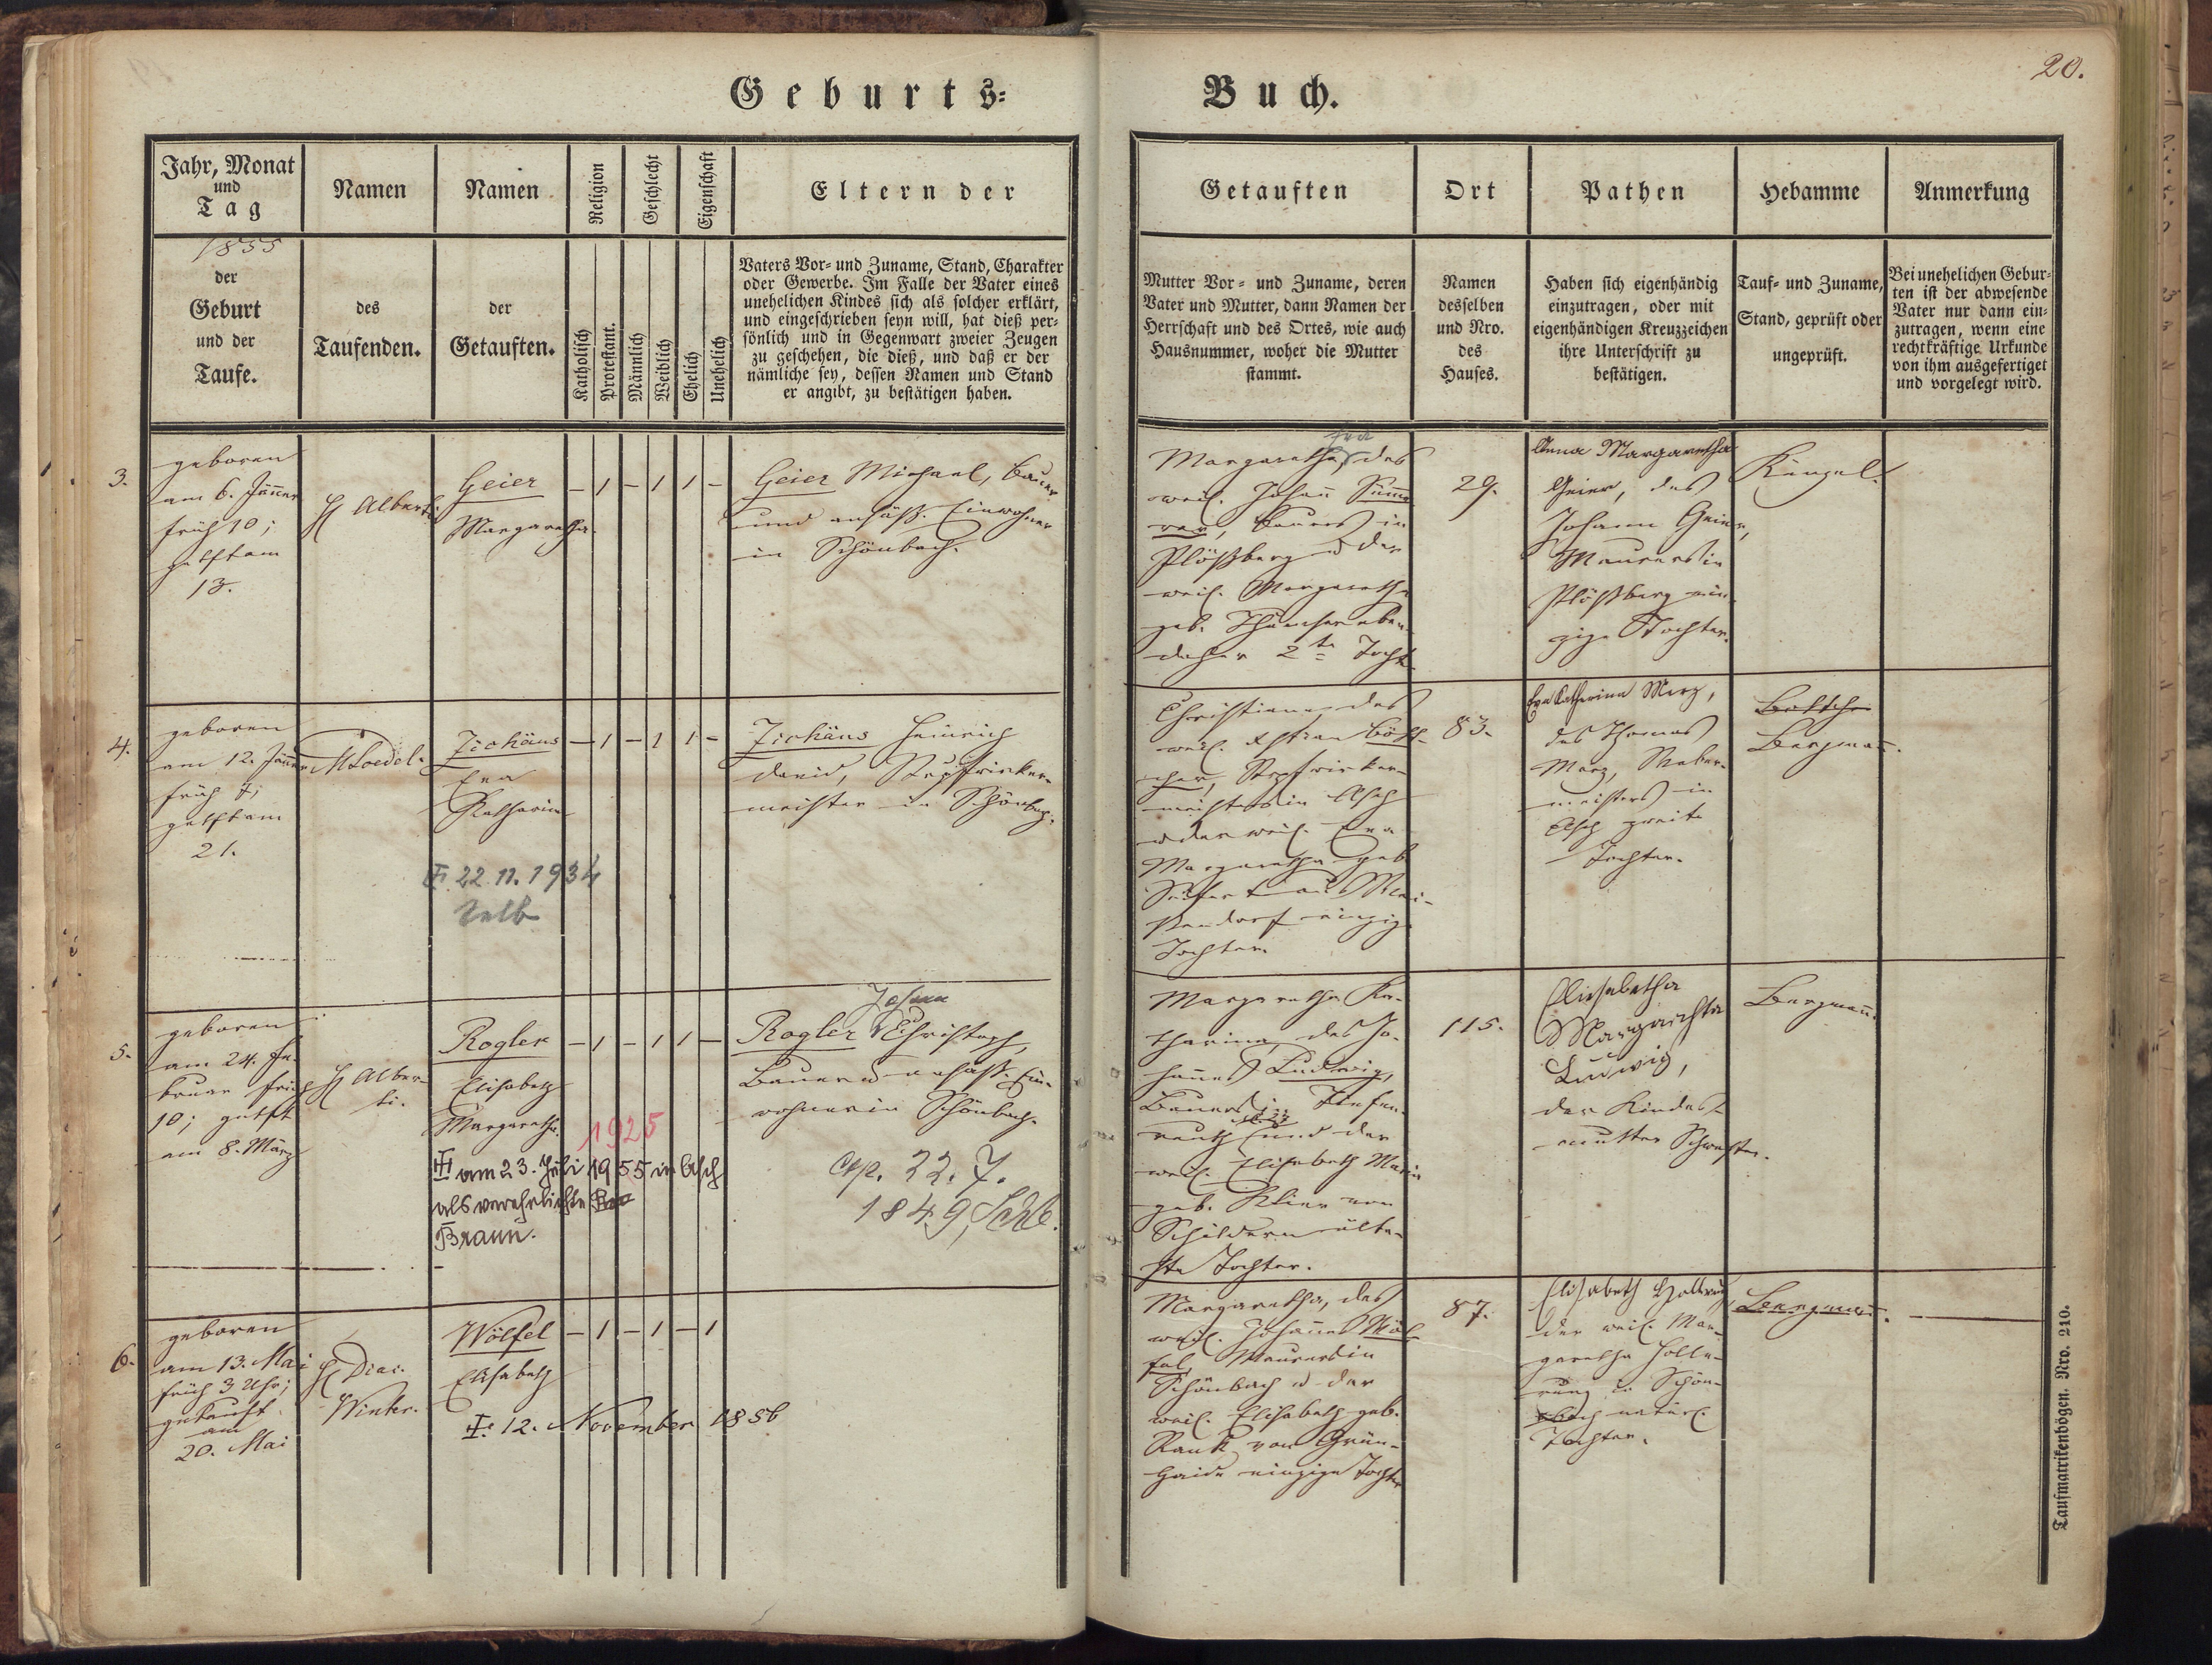 20.
Geburts-
Buch.
Jahr, Monat
und
Tag
1855
der
Geburt
und der
Taufe.
Namen
des
Taufenden.
Namen
der
Getauften.
Religion
Katholisch
Protestant.
Geschlecht
Männlich
Weiblich
Eigenschaft
Ehelich
Unehelich
Eltern der
Vaters Vor- und Zuname, Stand, Charakter
oder Gewerbe. Im Falle der Vater eines
unehelichen Kindes sich als solcher erklärt,
und eingeschrieben seyn will, hat dieß per-
sönlich und in Gegenwart zweier Zeugen
zu geschehen, die dieß, und daß er der
nämliche sey, dessen Namen und Stand
er angibt, zu bestätigen haben.
Getauften
Mutter Vor- und Zuname, deren
Vater und Mutter, dann Namen der
Herrschaft und des Ortes, wie auch
Hausnummer, woher die Mutter
stammt.
Ort
Namen
desselben
und Nro.
des
Hauses.
Pathen
Haben sich eigenhändig
einzutragen, oder mit
eigenhändigen Kreuzzeichen
ihre Unterschrift zu
bestätigen.
Hebamme
Tauf- und Zuname,
Stand, geprüft oder
ungeprüft.
Anmerkung
Bei unehelichen Gebur-
ten ist der abwesende
Vater nur dann ein-
zutragen, wenn eine
rechtkräftige Urkunde
von ihm ausgefertiget
und vorgelegt wird.
3.
geboren
am 6. Jänner
früh 10;
getft am
13.
H Alberti
Geier
Margaretha.
– 1 – 1 1 –
Geier Michael, Bauer
und ansäß. Einwohner
in Schönbach.
Margaretha, des
weil. Johann
Bauers in
Plößberg u der
weil. Margaretha
geb. eben-
daher 2te Tocht.
29.
Anna Margaretha
Geier, des
Johann Geier,
Maurers in
Plößberg ein-
zige Tochter.
Künzel.
4.
geboren
am 12. Jänner
früh
getft am
21.
M Loedel.
Zichäus
Eva
Katharina
– 1 – 1 1 –
22.11.1934
Selb
Zichäus Heinrich
David, Strpfwirker-
meister in Schönbach.
Christiana, des
weil.
Strpfwirker-
meisters in Asch
u der weil. Eva
Margaretha geb.
einzige
Tochter.
83.
Eva Katharina Merz,
des Thomas
Merz, Weber-
meisters in
Asch zweite
Tochter.
Bergmann.
5.
geboren
am 24. Fe-
bruar früh
10; getft
am 8. März
H Alber-
ti.
Rogler
Elisabeth
Margaretha.
– 1 – 1 1 –
1925
am 23. Juli 1955 in Asch
als verehelichte
Braun.
Johann
Rogler Christoph,
Bauer u ansäß. Ein-
wohner in Schönbach.
cop. 22. 7.
1849,
Margaretha Ka-
tharina, des Jo-
hannes Ludwig,
Bauers in Tiefen-
reuth und der
weil. Elisabeth Maria
geb. Klier von
Schildern älte-
ste Tochter.
115.
Elisabetha
Margaretha
Ludwig,
der Kindes-
mutter Schwester.
Bergmann.
6.
geboren
am 13. Mai
früh 3 Uhr;
getauft
am
20. Mai
H Diac.
Winter.
Wölfel
Elisabeth
– 1 – 1 – 1
12. November 1856
Margaretha, des
weil. Johannes Wöl-
fel, Maurers in
Schönbach u der
weil. Elisabeth geb.
Rank von Grün-
haid einzige Tochter
87.
Elisabeth Hollerung
der weil. Mar-
garetha Holle-
rung in Schön-
bach natürl.
Tochter.
Bergmann.
Taufmatrikenbögen. Nro. 210.